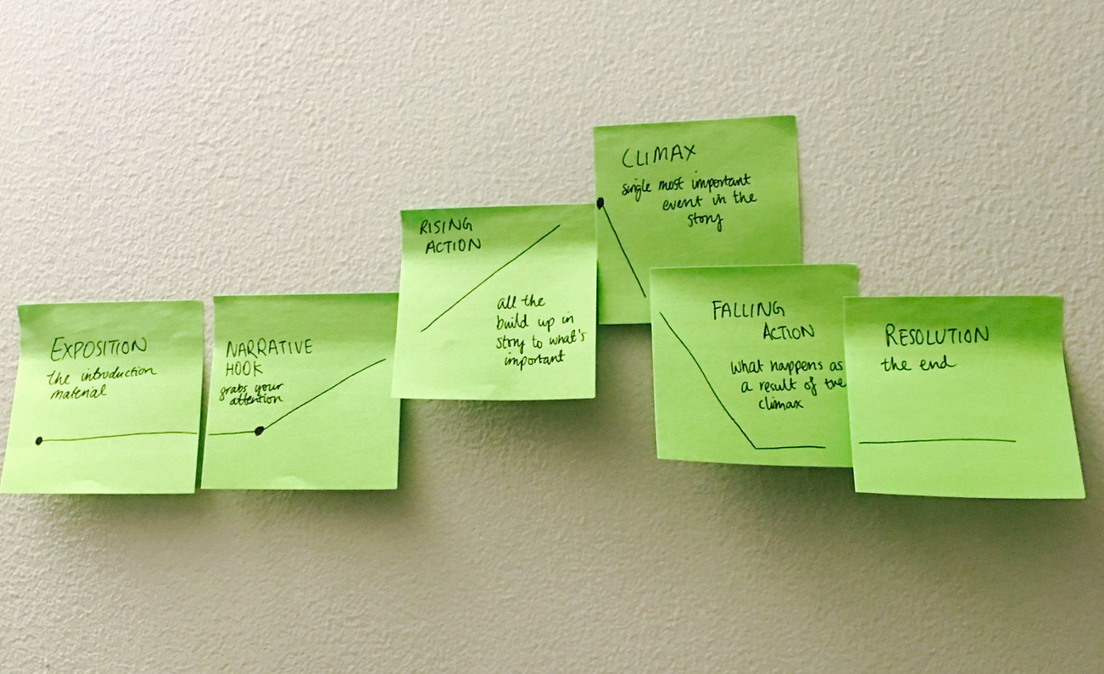 EXPOSITION
the introduction
material
NARRATIVE
HOOK
grabs your
attention
RISING
ACTION
all the
build up in
story to what's
important
CLIMAX
single most important
event in the
story
FALLING
ACTION
what happens as
a result of the
climax
RESOLUTION
the end